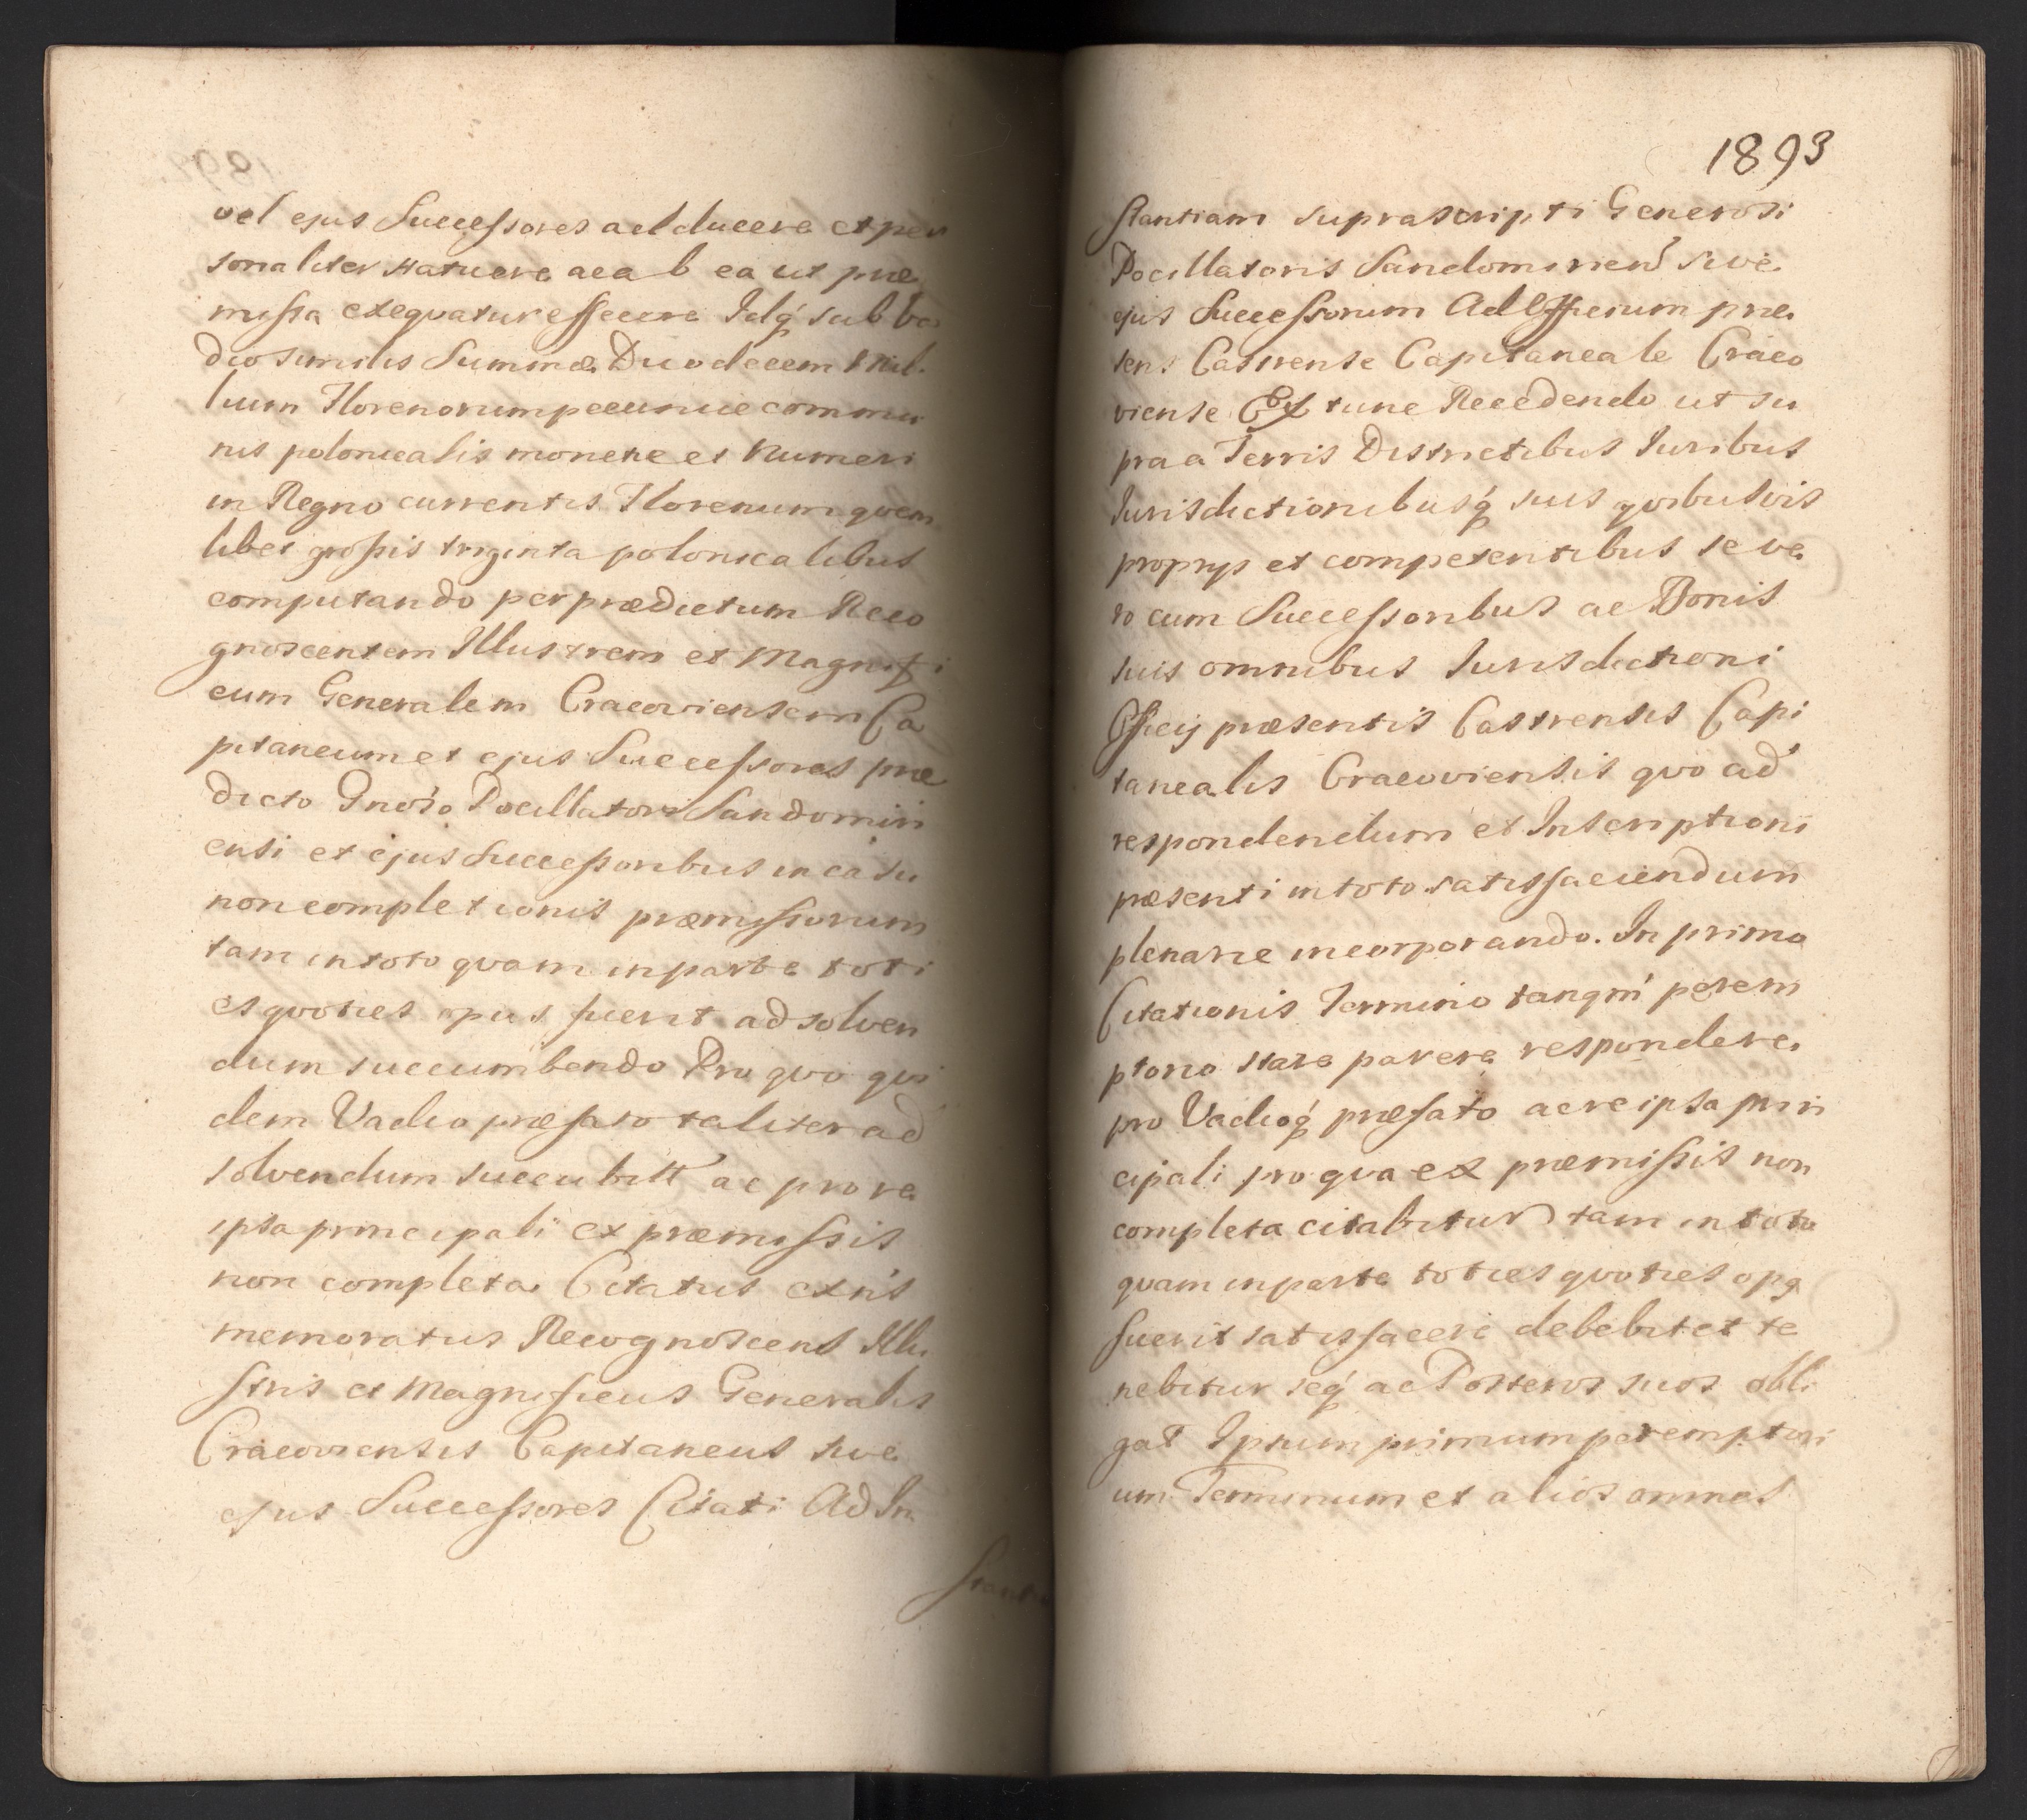 vel ejus Successores adducere et per
sonaliter statuere ac ab ea ut præ
missa exequatur efficere Idq́ sub va
dio similis Summæ Duodecem Mil
lium Florenorum pecuniæ commu
nis polonicalis monetæ et Numeri
in Regno currentis Florenum quem
libet grossis triginta polonicalibus
computando per prædictum Reco
gnoscentem Illustrem et Magnifi
cum Generalem Cracoviensem Ca
pitaneum et ejus Successores præ
dicto Gnoso Pocillatori Sandomiri
ensi et ejus Successoribus in casu
non completionis præmissorum
tam in toto quam in parte toti
es quoties opus fuerit ad solven
dum succumbendo Pro quo qui
dem Vadio præfato taliter ad
solvendum succubitt ac pro re
ipsa principali ex præmissis
non completa Citatus extis
memoratus Recognoscens Illu
stris et Magnificus Generalis
Cracoviensis Capitaneus sive
ejus Successores Citati Ad In
stanti
1893
stantiam suprascripti Generosi
Pocillatoris Sandomirien sive
ejus Successorum Ad Officium præ
sens Castrense Capitaneale Craco
viense Ex tunc Recedendo ut su
pra a Terris Districtibus Iuribus
Iurisdictionibusq́ suis quibusvis
proprys et competentibus se ve
ro cum Successoribus ac Bonis
suis omnibus Iurisdictioni
Officij præsentis Castrensis Capi
tanealis Cracoviensis quo ad
respondendum et Inscriptioni
præsenti in toto satisfaciendum
plenarie incorporando. In primo
Citationis Termino tanqm perem
ptorio stare parere respondere
pro Vadioq́ præfato ac re ipsa prin
cipali pro qua ex præmissis non
completa citabitur tam in toto
quam in parte toties quoties opq
fuerit satisfacere debebit et te
nebitur seq́ ac Posteros suos obli
gat Ipsum primum peremptori
um Terminum et alios omnes